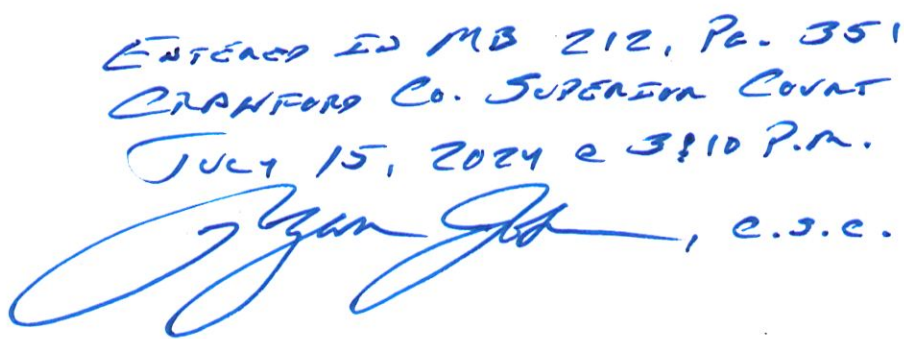 ENTERED IN MB 212, PG. 351
CRAWFORD CO. SUPERIOR COURT
JULY 15, 2024 @ 3:10 P.M.
, C.S.C.